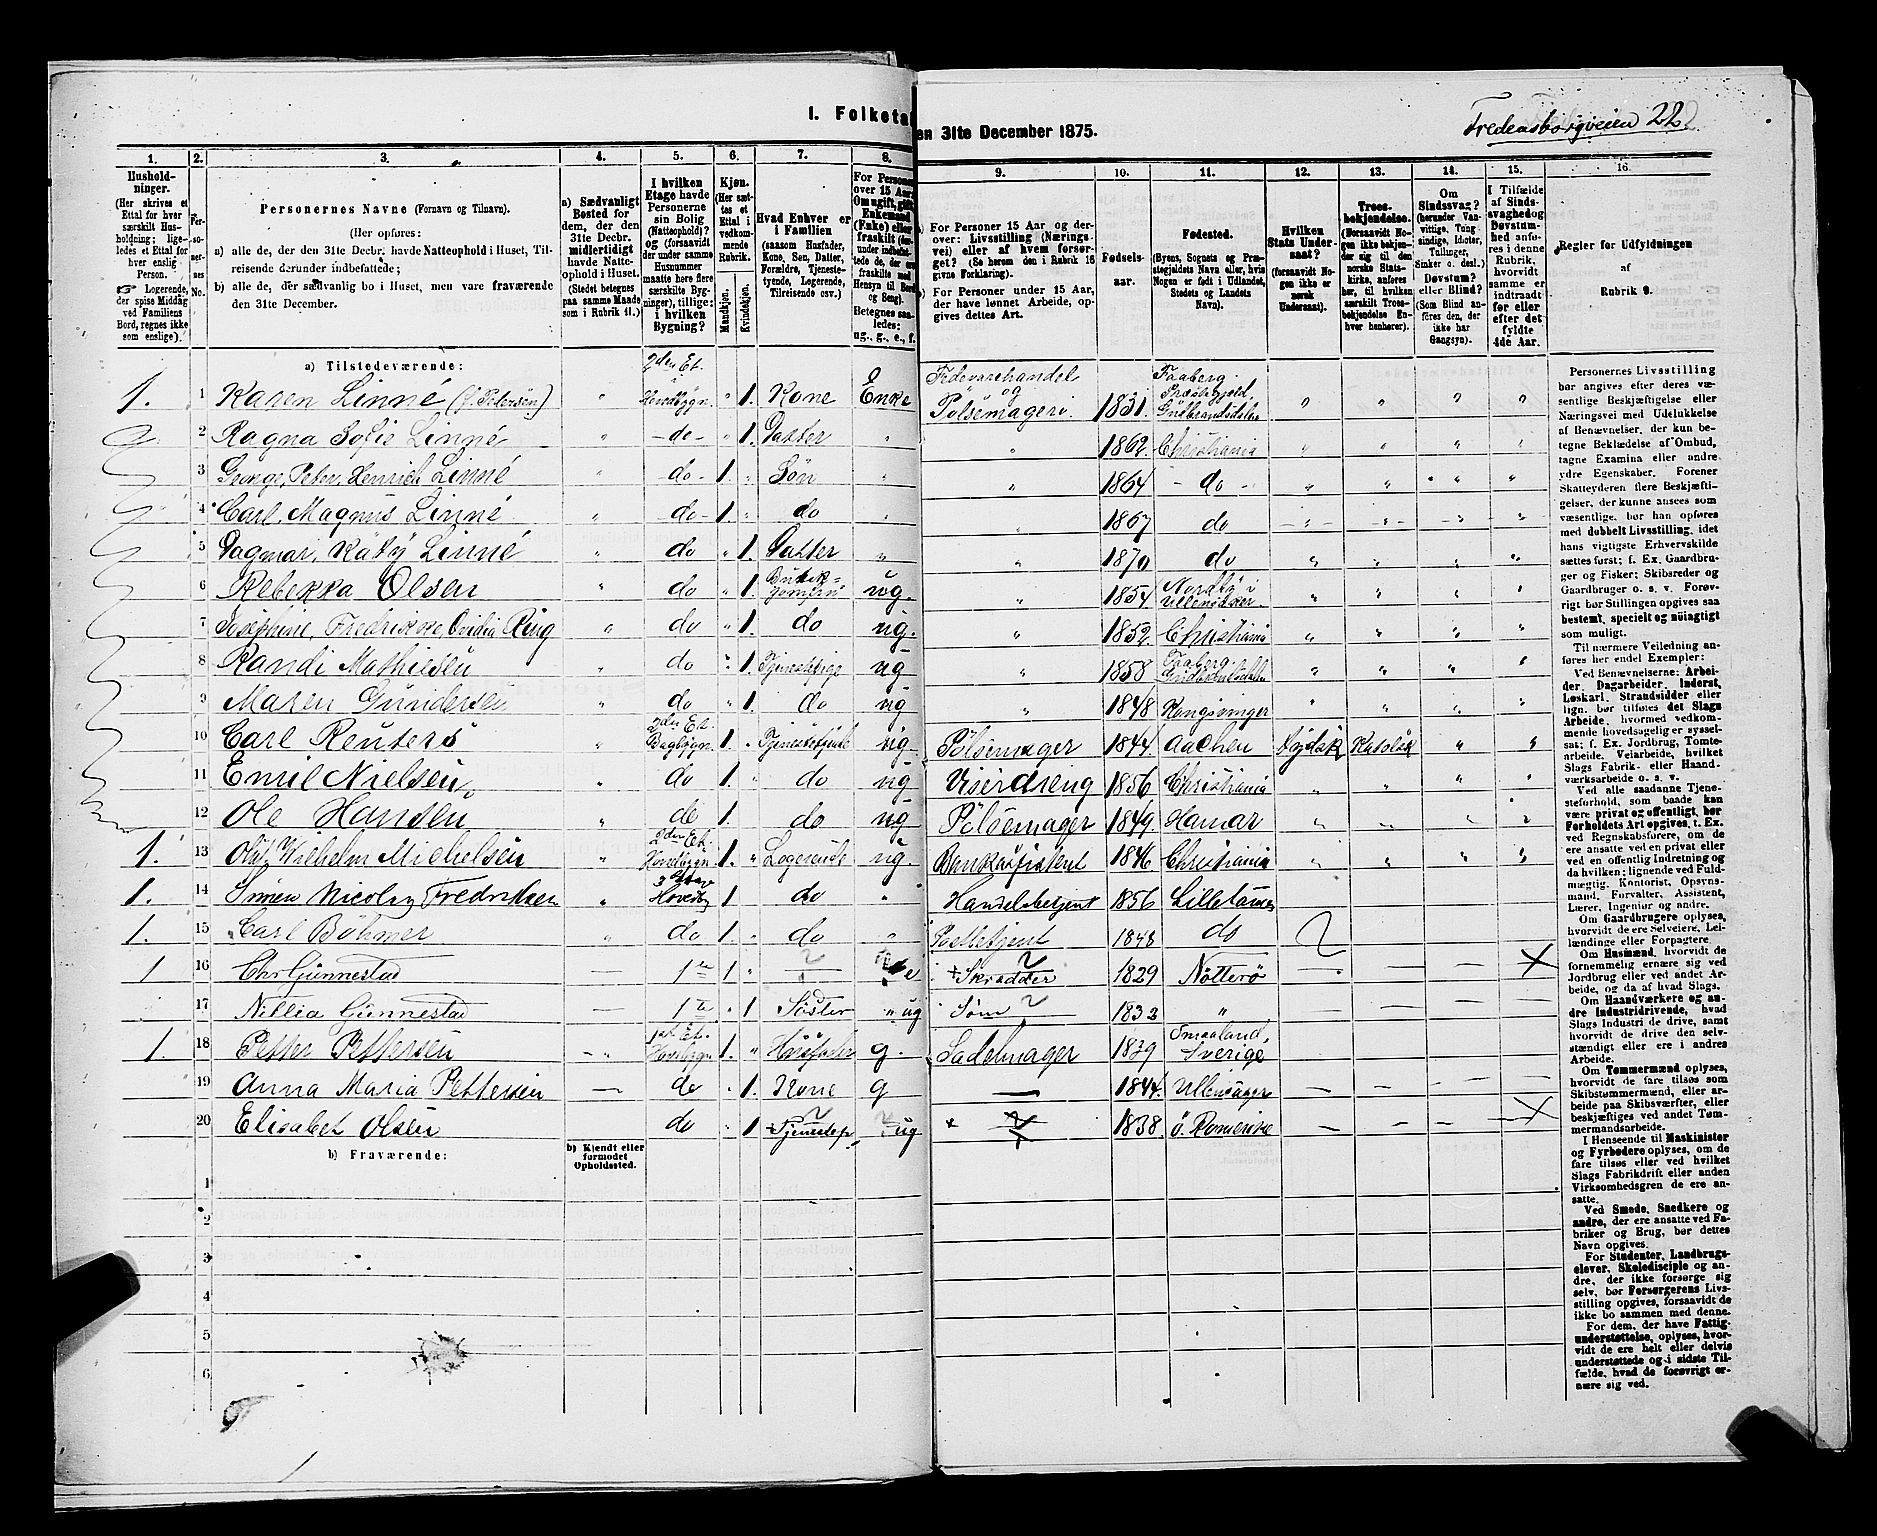 I. Folketa
en 31te December 1875.
Fredensborgveien 22
1. 2. 3. 4. 5. 6. 7. 8. 9. 10. 11. 12. 13. 14. 15. 16.
Hushold-
ninger.
(Her skrives et
Ettal for hver
særskilt Hus-
holdning; lige-
ledes et Ettal for
hver enslig
Person.
☞ Logerende,
der spise Middag
ved Familiens
Bord, regnes ikke
som enslige).
Per-
so-
ner-
nes
No.
Personernes Navne (Fornavn og Tilnavn).
(Her opføres:
a) alle de, der den 31te Decbr. havde Natteophold i Huset, Til-
reisende derunder indbefattede;
b) alle de, der sædvanlig bo i Huset, men vare fraværende
den 31te December.
a) Sædvanligt
Bosted for
dem, der den
31te Decbr.
midlertidigt
havde Natte-
ophold i Huset.
(Stedet betegnes
paa samme Maade
som i Rubrik 11.)
I hvilken
Etage havde
Personerne
sin Bolig
(Natteophold)?
og (forsaavidt
der under samme
Husnummer
maatte høre flere
særskilte Byg-
ninger), tillige:
i hvilken
Bygning?
Kjøn.
(Her sæt-
tes et
Ettal i
vedkom-
mende
Rubrik.
Mandkjøn.
Kvindekjøn.
Hvad Enhver er
i Familien
(saasom Husfader,
Kone, Søn, Datter,
Forældre, Tjeneste-
tyende, Logerende,
Tilreisende osv.)
For Personer
over 15 Aar:
Om ugift, gift,
Enkemand
(Enke) eller
fraskilt
Betegnes saa-
ledes:
ug., g., e., f.
a) For Personer 15 Aar og der-
over: Livsstilling (Nærings-
vei) eller af hvem forsør-
get? (Se herom den i Rubrik 16
givne Forklaring).
b) For Personer under 15 Aar,
der have lønnet Arbeide, op-
gives dettes Art.
Fødsels-
aar.
Fødested.
(Byens, Sognets og Præ-
stegjeldets Navn eller, hvis
Nogen er født i Udlandet,
Stedets og Landets
Navn).
Hvilken
Stats Under-
saat?
(forsaavidt No-
gen ikke er
norsk
Undersaat).
Troes-
bekjendelse.
(Forsaavidt No-
gen ikke bekjen-
der sig til den
norske Stats-
kirke, anføres
her, til hvilken
særskilt Troes-
bekjendelse En-
hver henhører).
Om
Sindssvag?
(herunder Van-
vittige, Tung-
sindige, Idioter,
Tullinger,
Sinker o. desl.)
Døvstum?
eller Blind?
(Som Blind an-
føres den, der
ikke har
Gangsyn).
I Tilfælde
af Sinds-
svaghed og
Døvstum-
hed anfø-
res i denne
Rubrik,
hvorvidt
samme er
indtraadt
før eller
efter det
fyldte
4de Aar.
Regler for Udfyldningen
af
Rubrik 9.
a) Tilstedeværende:
1. 1 Karen Linné (f. Pedersen) " 2den Et. Hovedbygn. " 1. Kone Enke Fedevarehandel og Pölsemageri. 1831. Faaberg Præstegjeld Gudbrandsdalen " " " "
2 Ragna Sofie Linné " - do - " 1. Datter " " 1862. Christiania " " " "
3 George, Peter, Henrich Linné " - do - 1. " Søn " " 1864 - do - " " " "
4 Carl, Magnus Linné " - do - 1. " do " " 1867 do " " " "
5 Dagmar, Katy Linné " do " 1. Datter " " 1870 do " " " "
6 Rebekka Olsen " do " 1. ug. " 1854 Nordby i Ullensaker. " " " "
7 Josephine, Fredrikke, Ovidia Ring " do " 1. do ug. " 1852 Christiania " " " "
8 Randi Mathiesen " do " 1. Tjenestepige ug " 1858 Faaberg Gudbrandsdalen " " " "
9 Maren Gundersen " do " 1. do ug " 1848 Kongsvinger " " " "
10 Carl Reuters " 2den Et. Bagbygn. 1. " Tjenestetjente ug Pölsemager 1844 Aachen Tydsk Katolsk " "
11 Emil Nielsen " do 1. " do ug Viserdreng 1856 Christiania " " " "
12 Ole Hansen " do 1. do ug Pölsemager 1849. Hamar " " " "
1. 13 Olaf, Wilhelm Michelsen " 2den Et. Hovedbygn. 1. " Logerende ug. Bankassistent 1846 Christiania " " " "
1. 14 Simen Nicolay Fredriksen " 3 Hovedb 1 do " Handelsbetjent 1856 Lillehammer
1. 15 Carl Böhmer " do 1. do " Postbetjent 1848 do
1 16 Chr Gunnestad — 1ste 1 " e Skrædder 1829 Nötterö
17 Nillia Gunnestad — 1ste 1 Söster ug Søm 1832 "
1. 18 Petter Pettersen — 1ste Et. Hovedbygn 1. " Husfader g. Sadelmager 1839 Smaaland, Sverige
19 Anna Maria Pettersen — do " 1. Kone g — 1844. Ullensager
20 Elisabet Olsen do " 1 Tjenestep. ug 1838. ö. Romerike
b) Fraværende:
b) Kjendt eller
formodet
Opholdssted.
1
2
3
4
5
6
Personernes Livsstilling
bør angives efter deres væ-
sentlige Beskjæftigelse eller
Næringsvei med Udelukkelse
af Benævnelser, der kun be-
tegne Beklædelse af Ombud,
tagne Examina eller andre
ydre Egenskaber. Forener
Skatteyderen flere Beskjæfti-
gelser, der kunne ansees som
væsentlige, bør han opføres
med dobbelt Livsstilling, idet
hans vigtigste Erhvervskilde
sættes først; f. Ex. Gaardbru-
ger og Fisker; Skibsreder og
Gaardbruger o. s. v. Forøv-
rigt bør Stillingen opgives saa
bestemt, specielt og nöiagtigt
som muligt.
Til nærmere Veiledning an-
føres her endel Exempler:
Ved Benævnelserne: Arbei-
der, Dagarbeider, Inderst,
Løskarl, Strandsidder eller
lign. bør tilføies det Slags
Arbeide, hvormed vedkom-
mende hovedsagelig er syssel-
sat; f. Ex. Jordbrug, Tomte-
arbeide, Veiarbeide, hvilket
Slags Fabrik- eller Haand-
værksarbeide o. s. v.
Ved alle saadanne Tjene-
steforhold, som baade kan
være privat og offentlig, bør
Forholdets Art opgives, t. Ex.
ved Regnskabsførere, om de
ere ansatte ved en privat eller
ved en offentlig Indretning og
da hvilken; lignende ved Fuld-
mægtig, Kontorist, Opsyns-
mand, Forvalter, Assistent,
Lærer, Ingeniør og andre.
Om Gaardbrugere oplyses,
hvorvidt de ere Selveiere, Lei-
lændinge eller Forpagtere.
Om Husmænd, hvorvidt de
fornemmelig ernære sig ved
Jordbrug eller ved andet Ar-
beide, og da af hvad Slags.
Om Haandværkere og an-
dre Industridrivende, hvad
Slags Industri de drive, samt
hvorvidt de drive den selv-
stændigt eller ere i andres
Arbeide.
Om Tømmermænd oplyses,
hvorvidt de fare tilsøs som
Skibstømmermænd, eller ar-
beide paa Skibsværfter, eller
beskjæftiges ved andet Tøm-
mermandsarbeide.
I Henseende til Maskinister
og Fyrbødere oplyses, om de
fare tilsøs eller ved hvilket
Slags Fabrikdrift eller anden
Virksomhedsgren de ere an-
satte.
Ved Smede, Snedkere og
andre, der ere ansatte ved Fa-
briker og Brug, bør dettes
Navn opgives.
For Studenter, Landbrugs-
elever, Skoledisciple og an-
dre, der ikke forsørge sig
selv, bør Forsørgerens Livs-
stilling opgives, forsaavidt de
ikke bo sammen med denne.
For dem, der have Fattig-
understøttelse, oplyses, hvor-
vidt de ere helt eller delvis
understøttede og i sidste Til-
fælde, hvad de forøvrigt er-
nære sig ved.